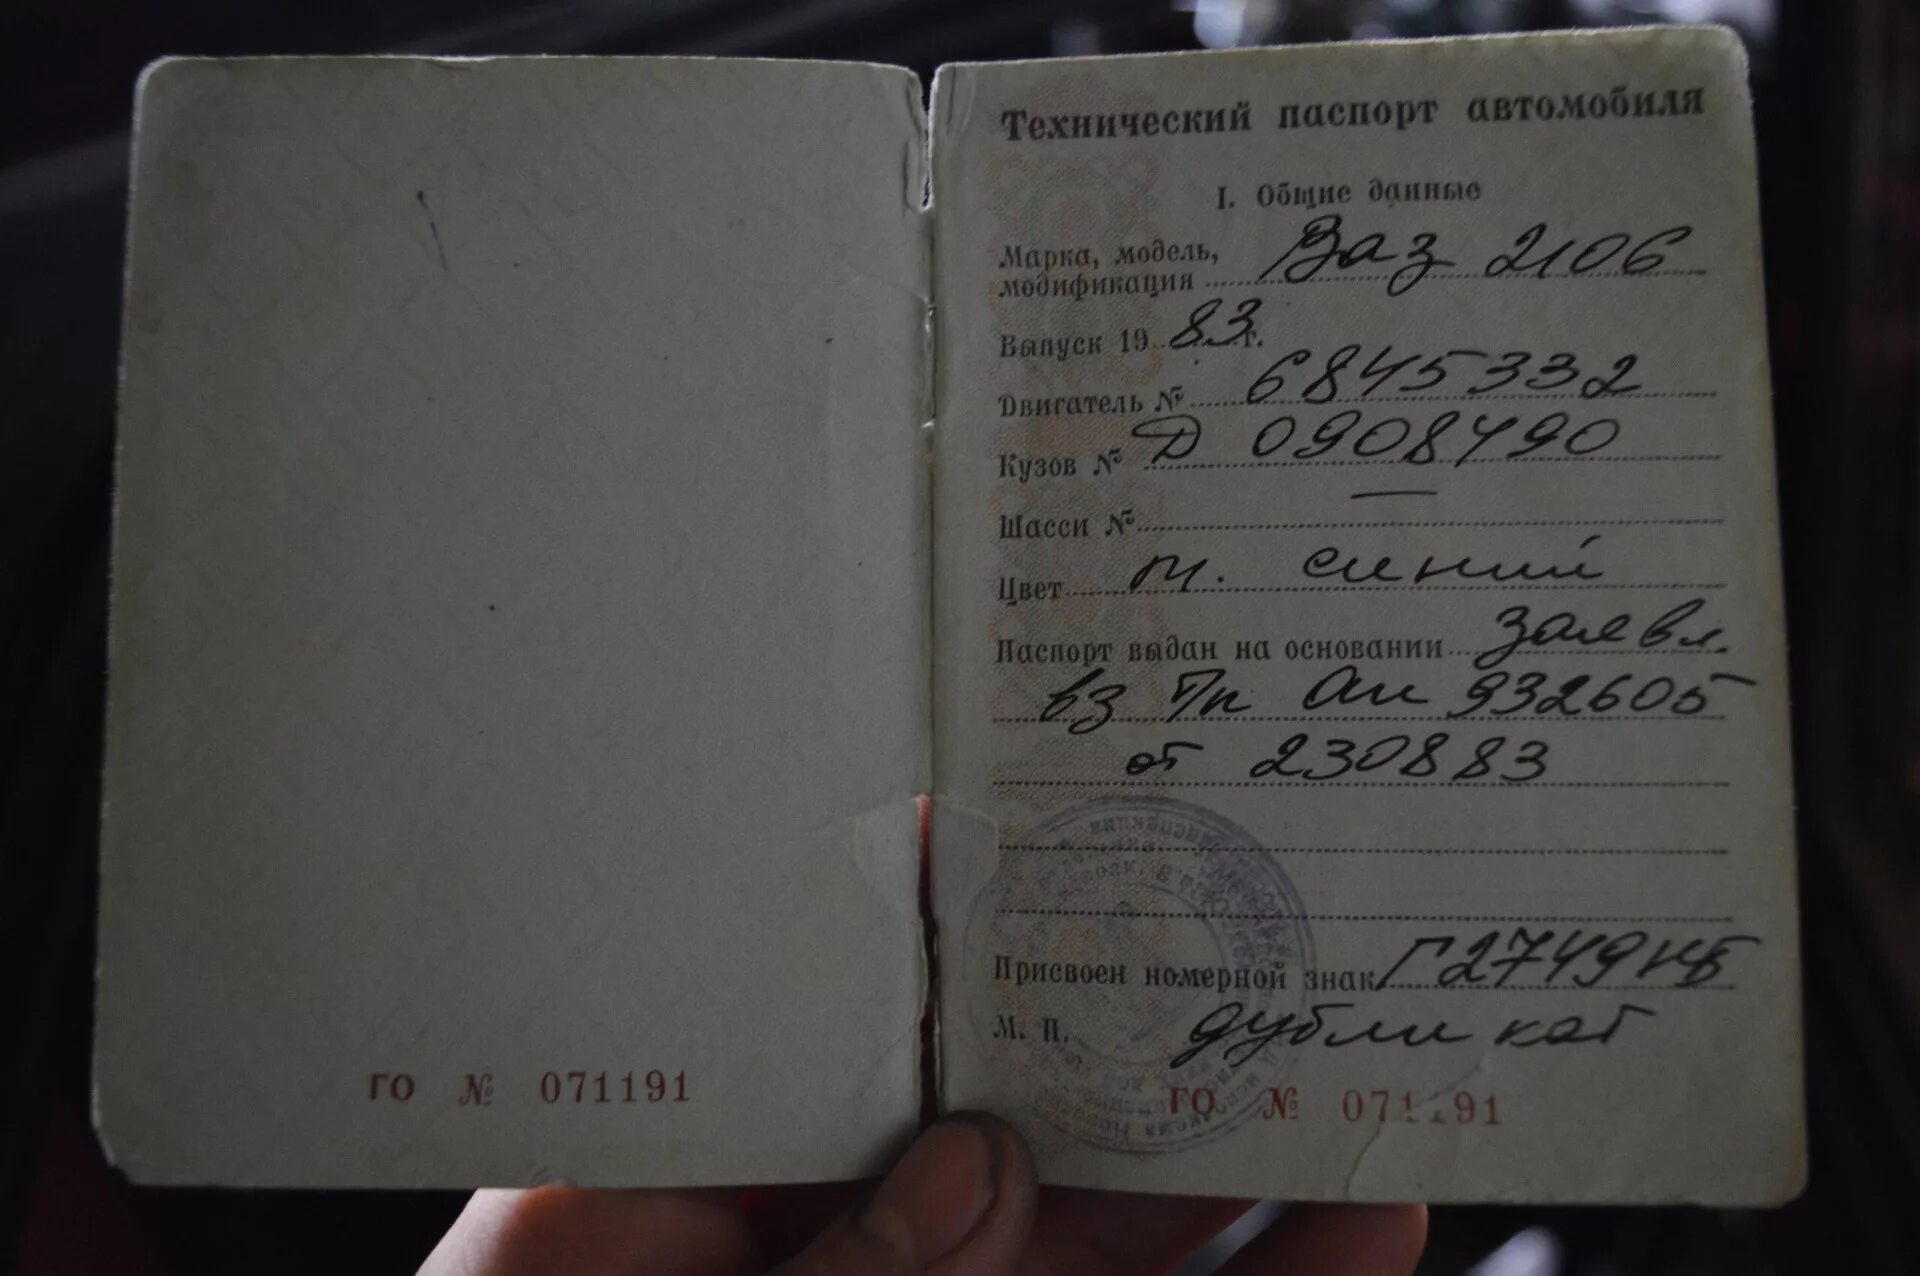 ГО № 071191
Технический паспорт автомобиля
I. Общие данные
Марка, модель,
модификация Ваз 2106
Выпуск 19 83 г.
Двигатель № 6845332
Кузов № Д 0908490
Шасси № —
Цвет т. синий
Паспорт выдан на основании заявл.
вз Тп 932605
от 230883
Присвоен номерной знак Г2749НБ
М. П. дубликат
ГО № 071191